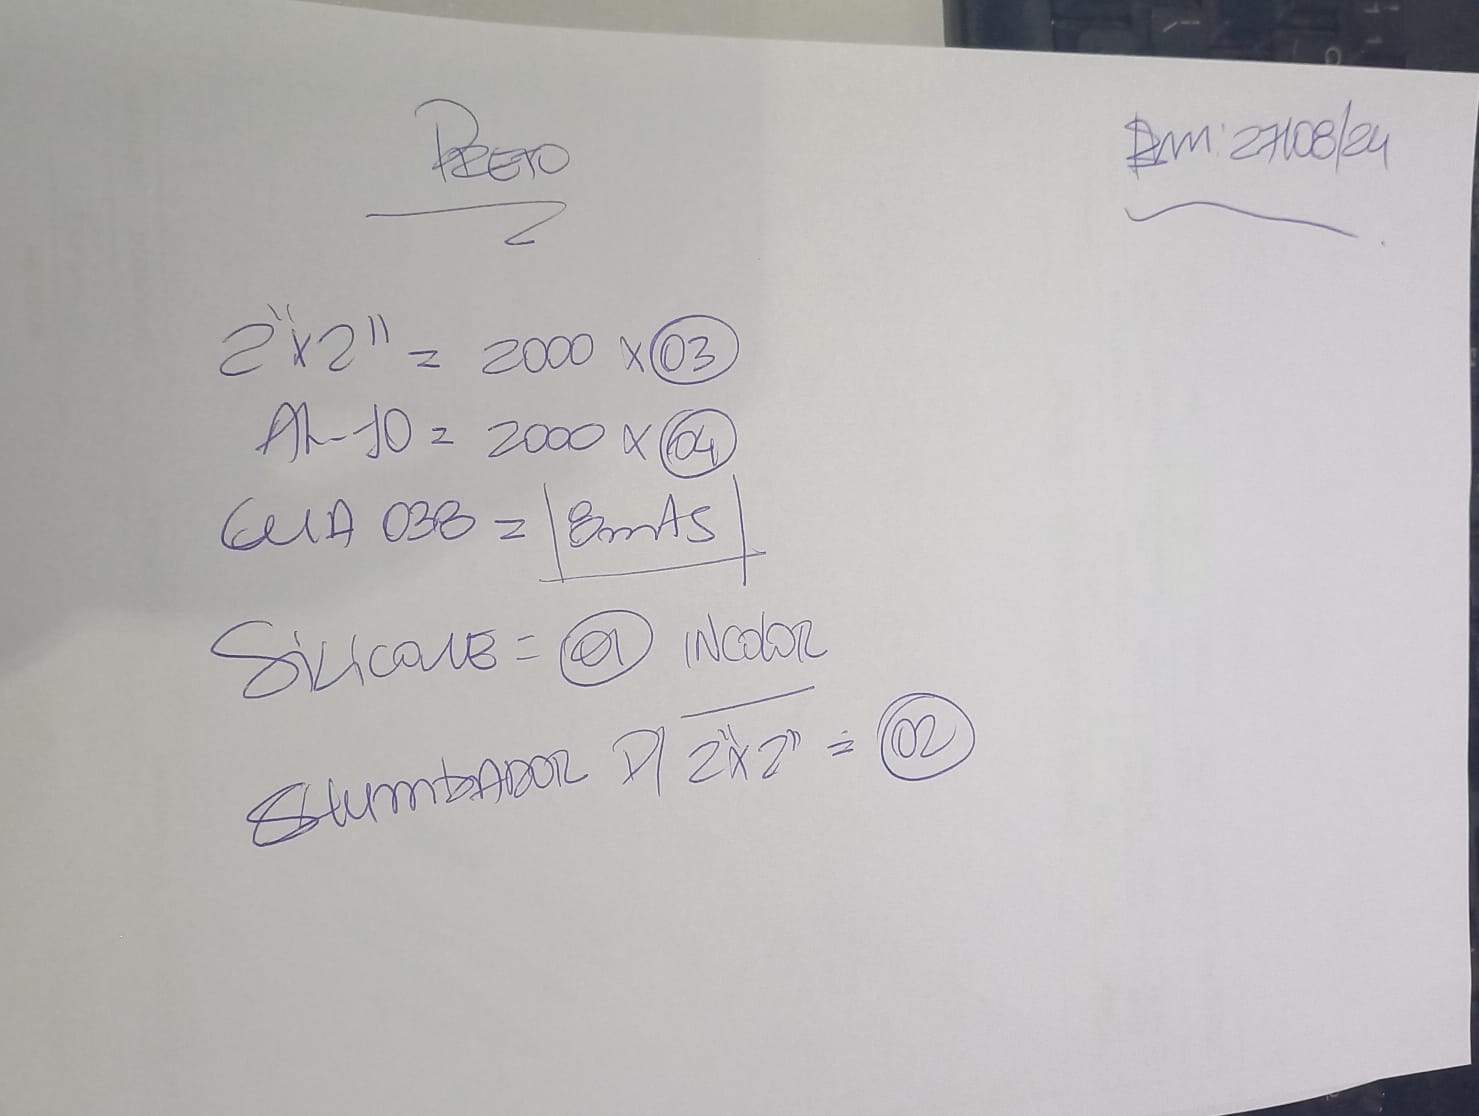 PRETO
27/08/24
2"x2" = 2000 x 03
AL-10 = 2000 x 04
GUIA 038 = 8mts
SILICONE = 01 INCOLOR
CHUMBADOR P/ 2"x2" = 02